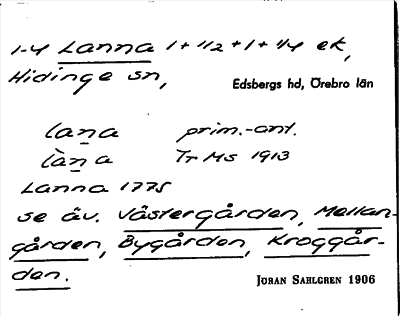 1-4 Lanna 1 + 1/2 + 1 + 1/4 ek,
Hidinge sn,
Edsbergs hd, Örebro län
lana prim.-ant.
làn a Tr Ms 1913
Lanna 1775
se äv. Västergården, Mellan-
gården, Bygården, Kroggår-
den.
JÖRAN SAHLGREN 1906